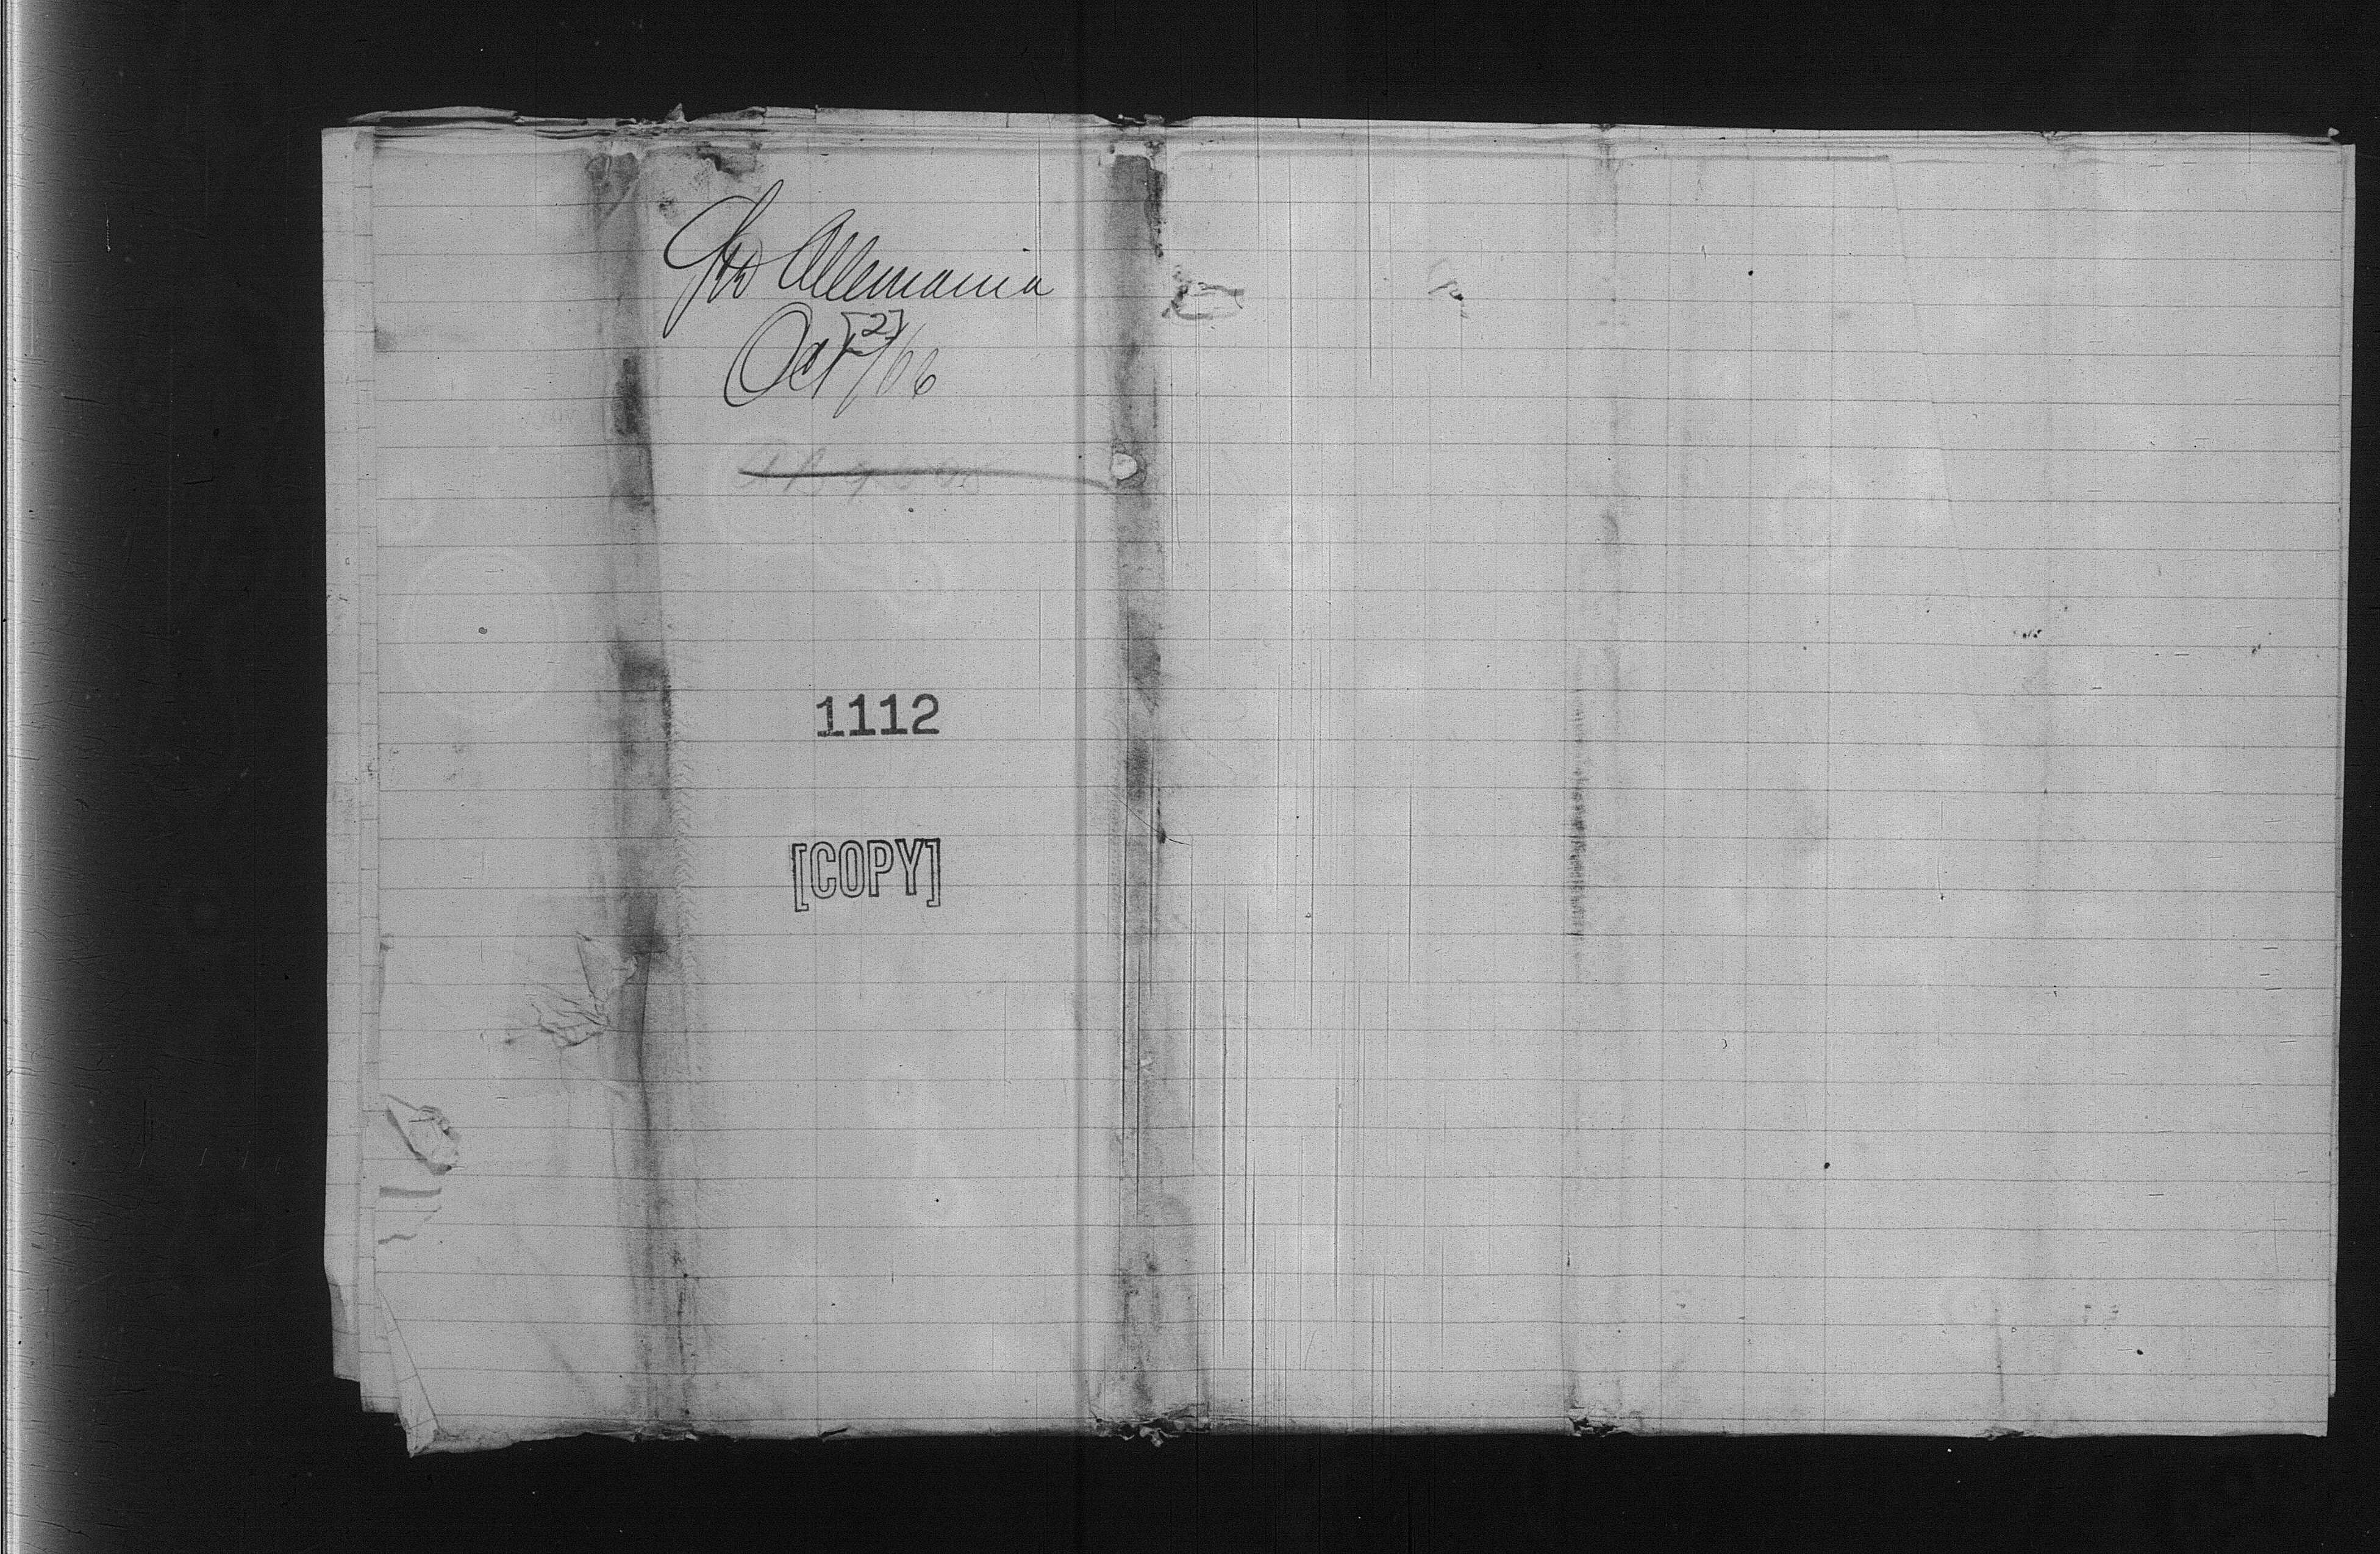 Str Allemania
Oct [2]/06
1112
[COPY]